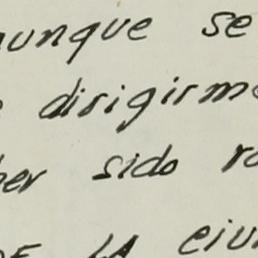 aunque se
dirigirme
ber sido
DE LA ciu